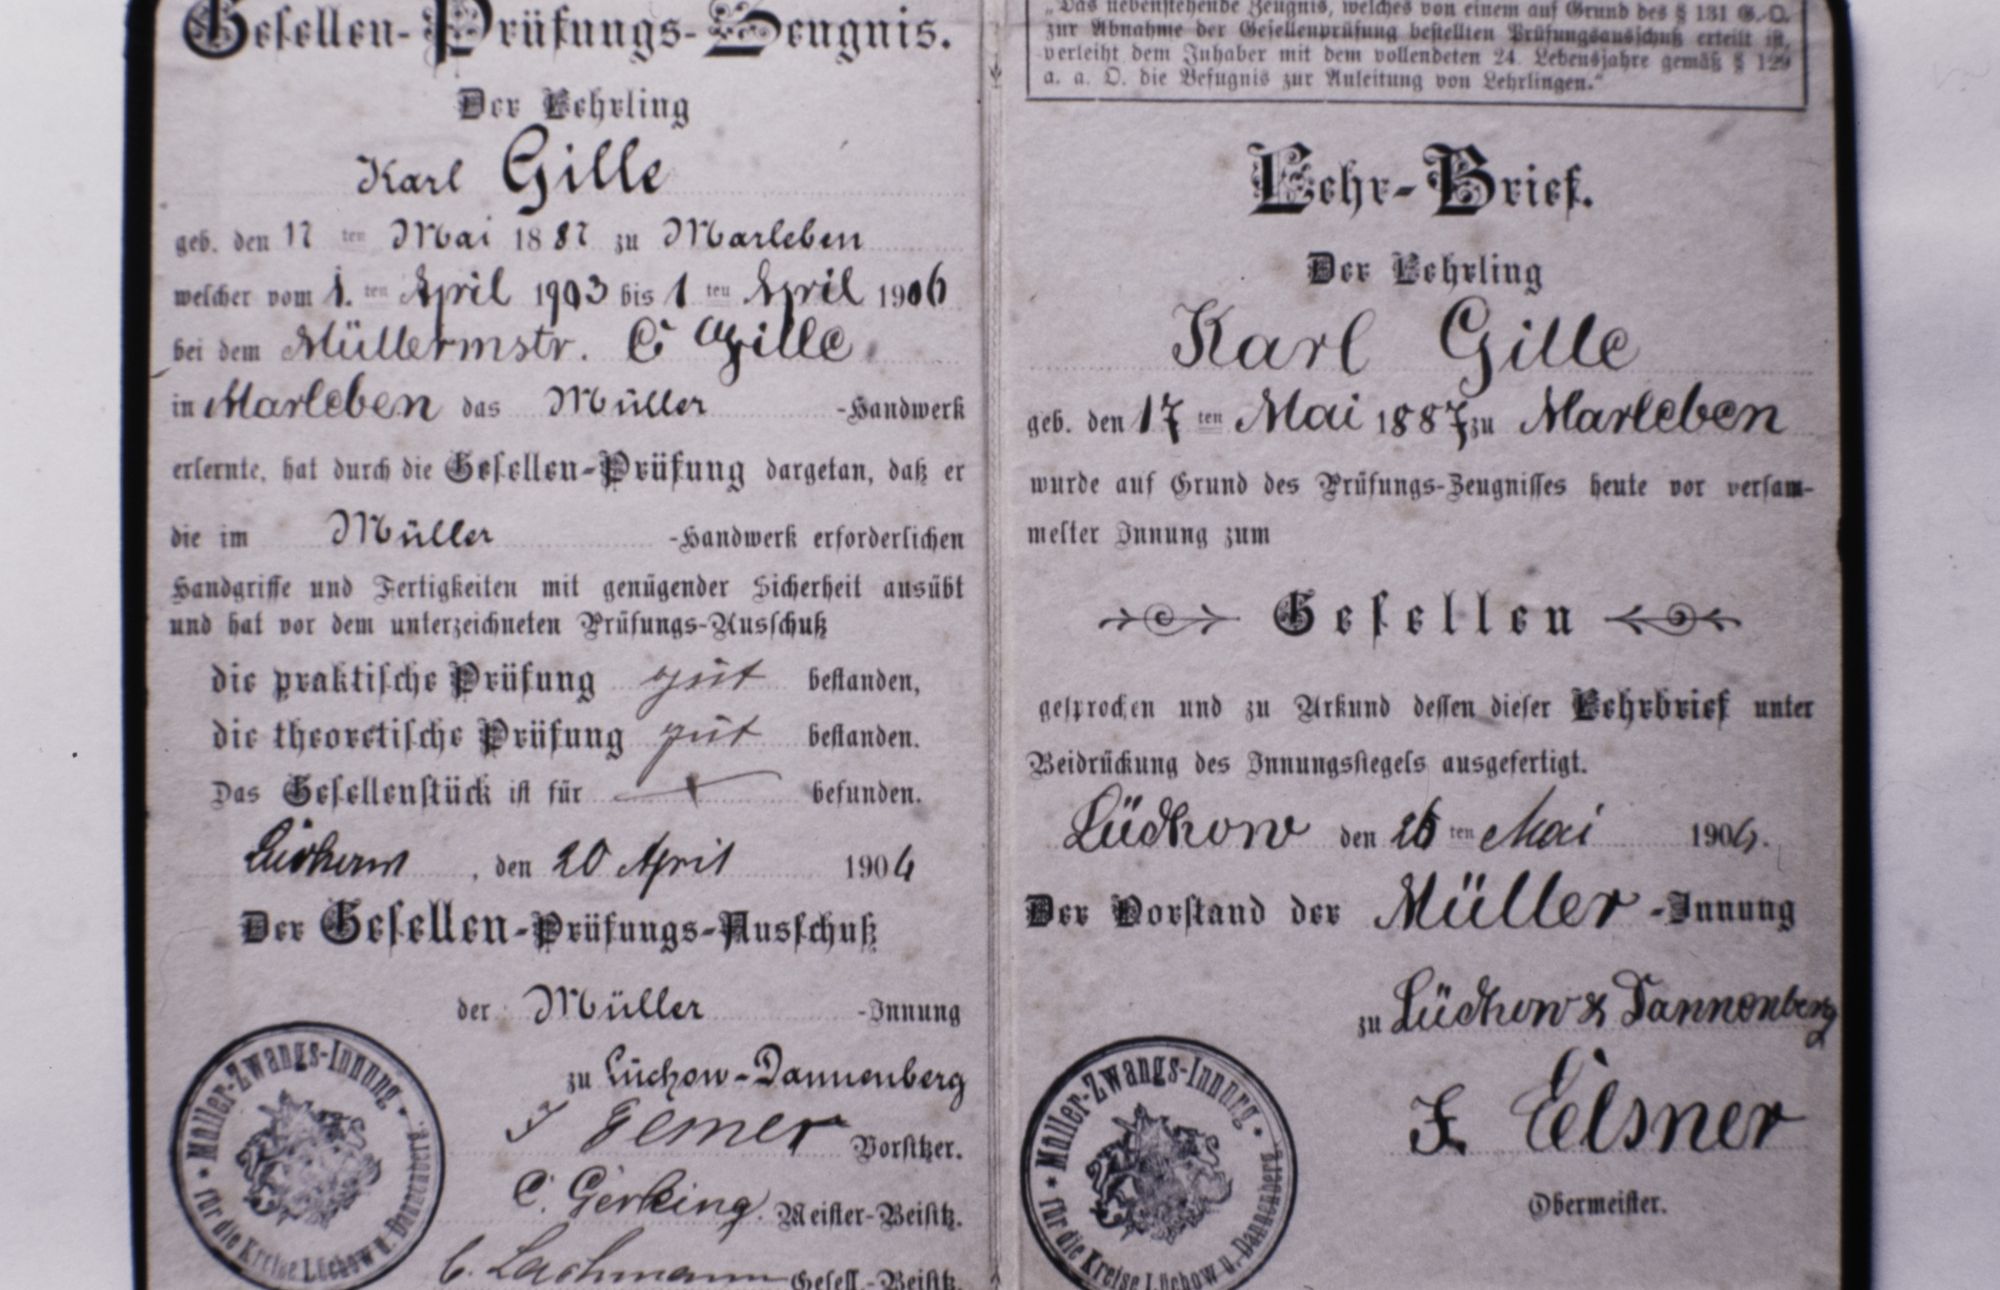 Gesellen-Prüfungs-Zeugnis.
Der Lehrling
Karl Gille
geb. den 17 ten Mai 1887 zu Marleben
welcher vom 1. ten April 1903 bis 1 ten April 1906
bei dem Müllermstr. C. Gille
in Marleben das Müller -Handwerk
erlernte, hat durch die Gesellen-Prüfung dargetan, daß er
die im Müller -Handwerk erforderlichen
Handgriffe und Fertigkeiten mit genügender Sicherheit ausübt
und hat vor dem unterzeichneten Prüfungs-Ausschuß
die praktische Prüfung gut bestanden,
die theoretische Prüfung gut bestanden.
Das Gesellenstück ist für befunden.
Lüchow, den 20 April 1906
Der Gesellen-Prüfungs-Ausschuß
der Müller -Innung
zu Lüchow-Dannenberg
Vorsitzer.
C. Gerking. Meister-Beisitz.
C. Lachmann Gesell.-Beisitz.
Müller-Zwangs-Innung
für die Kreise Lüchow u. Dannenberg.
„Das nebenstehende Zeugnis, welches von einem auf Grund des § 131 G.-O.
zur Abnahme der Gesellenprüfung bestellten Prüfungsausschuß erteilt ist,
verleiht dem Inhaber mit dem vollendeten 24. Lebensjahre gemäß § 129
a. a. O. die Befugnis zur Anleitung von Lehrlingen."
Lehr-Brief.
Der Lehrling
Karl Gille
geb. den 17 ten Mai 1887 zu Marleben
wurde auf Grund des Prüfungs-Zeugnisses heute vor versam-
melter Innung zum
Gesellen
gesprochen und zu Urkund dessen dieser Lehrbrief unter
Beidrückung des Innungssiegels ausgefertigt.
Lüchow den 26 ten Mai 1906.
Der Vorstand der Müller -Innung
zu Lüchow & Dannenberg
F. Eelsner
Obermeister.
Müller-Zwangs-Innung
für die Kreise Lüchow u. Dannenberg.